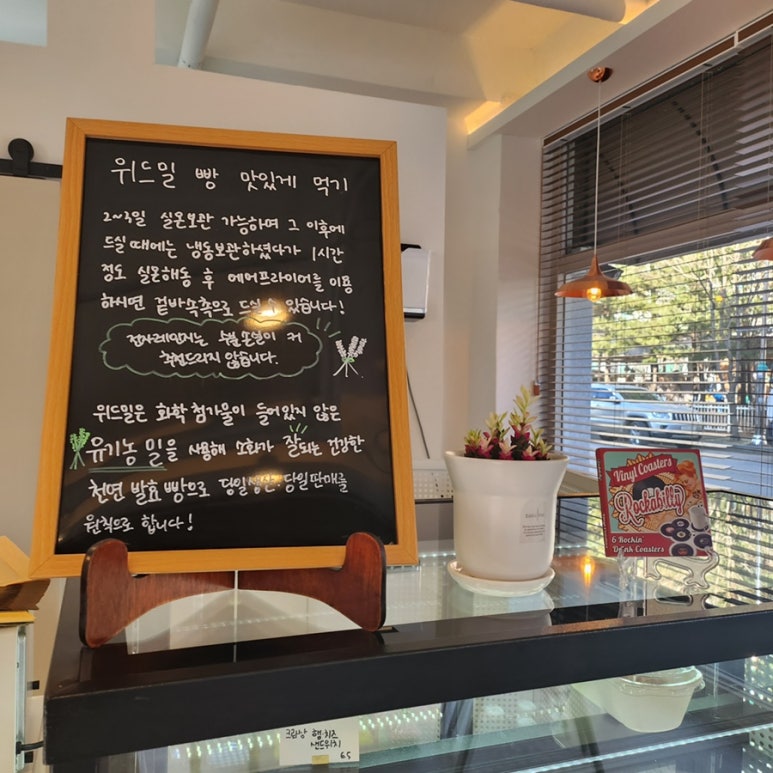 위드밀 빵 맛있게 먹기
2~3일 실온보관 가능하며 그 이후에
드실 때에는 냉동보관하셨다가 1시간
정도 실온해동 후 에어프라이어를 이용
하시면 겉바속촉으로 드실 수 있습니다!
전자레인지는 수분손실이 커
추천드리지 않습니다.
위드밀은 화학첨가물이 들어있지 않은
유기농 밀을 사용해 소화가 잘되는 건강한
천연 발효빵으로 당일생산·당일판매를
원칙으로 합니다!
Vinyl Coasters
Rockabilly
6 Rockin'
Drink Coasters
크림상 햄·치즈
샌드위치
6.5